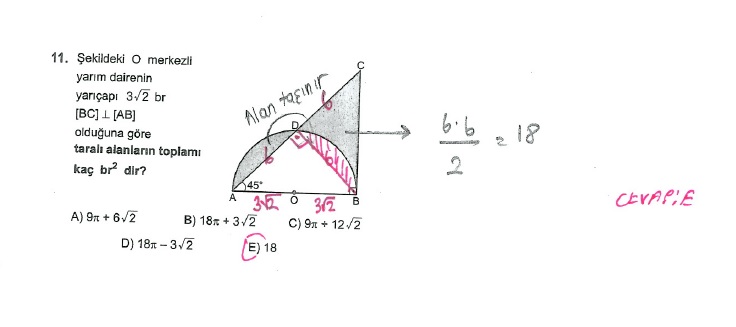 11. Şekildeki O merkezli
yarım dairenin
yarıçapı 3√2 br
[BC] ⊥ [AB]
olduğuna göre
taralı alanların toplamı
kaç br² dir?
C
Alan taşınır
6
D
6
6
45°
A
O
B
3√2
3√2
6.6
2
= 18
CEVAP: E
A) 9π + 6√2
B) 18π + 3√2
C) 9π + 12√2
D) 18π − 3√2
E) 18